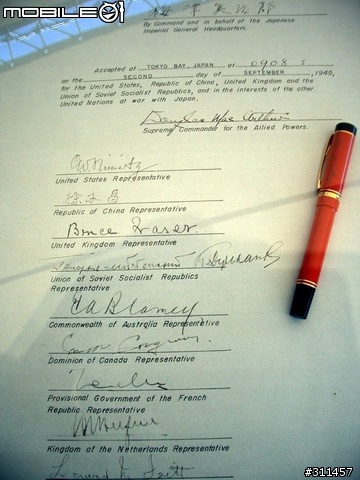 MOBILE01
By Command and in behalf of the Japanese
Imperial General Headquarters.
Accepted at TOKYO BAY, JAPAN at 0908 I
on the SECOND day of SEPTEMBER, 1945,
for the United States, Republic of China, United Kingdom and the
Union of Soviet Socialist Republics, and in the interests of the other
United Nations at war with Japan.
Douglas MacArthur
Supreme Commander for the Allied Powers.
C.W. Nimitz
United States Representative
徐永昌
Republic of China Representative
Bruce Fraser
United Kingdom Representative
Union of Soviet Socialist Republics
Representative
T.A. Blamey
Commonwealth of Australia Representative
Dominion of Canada Representative
Provisional Government of the French
Republic Representative
Kingdom of the Netherlands Representative
#311457